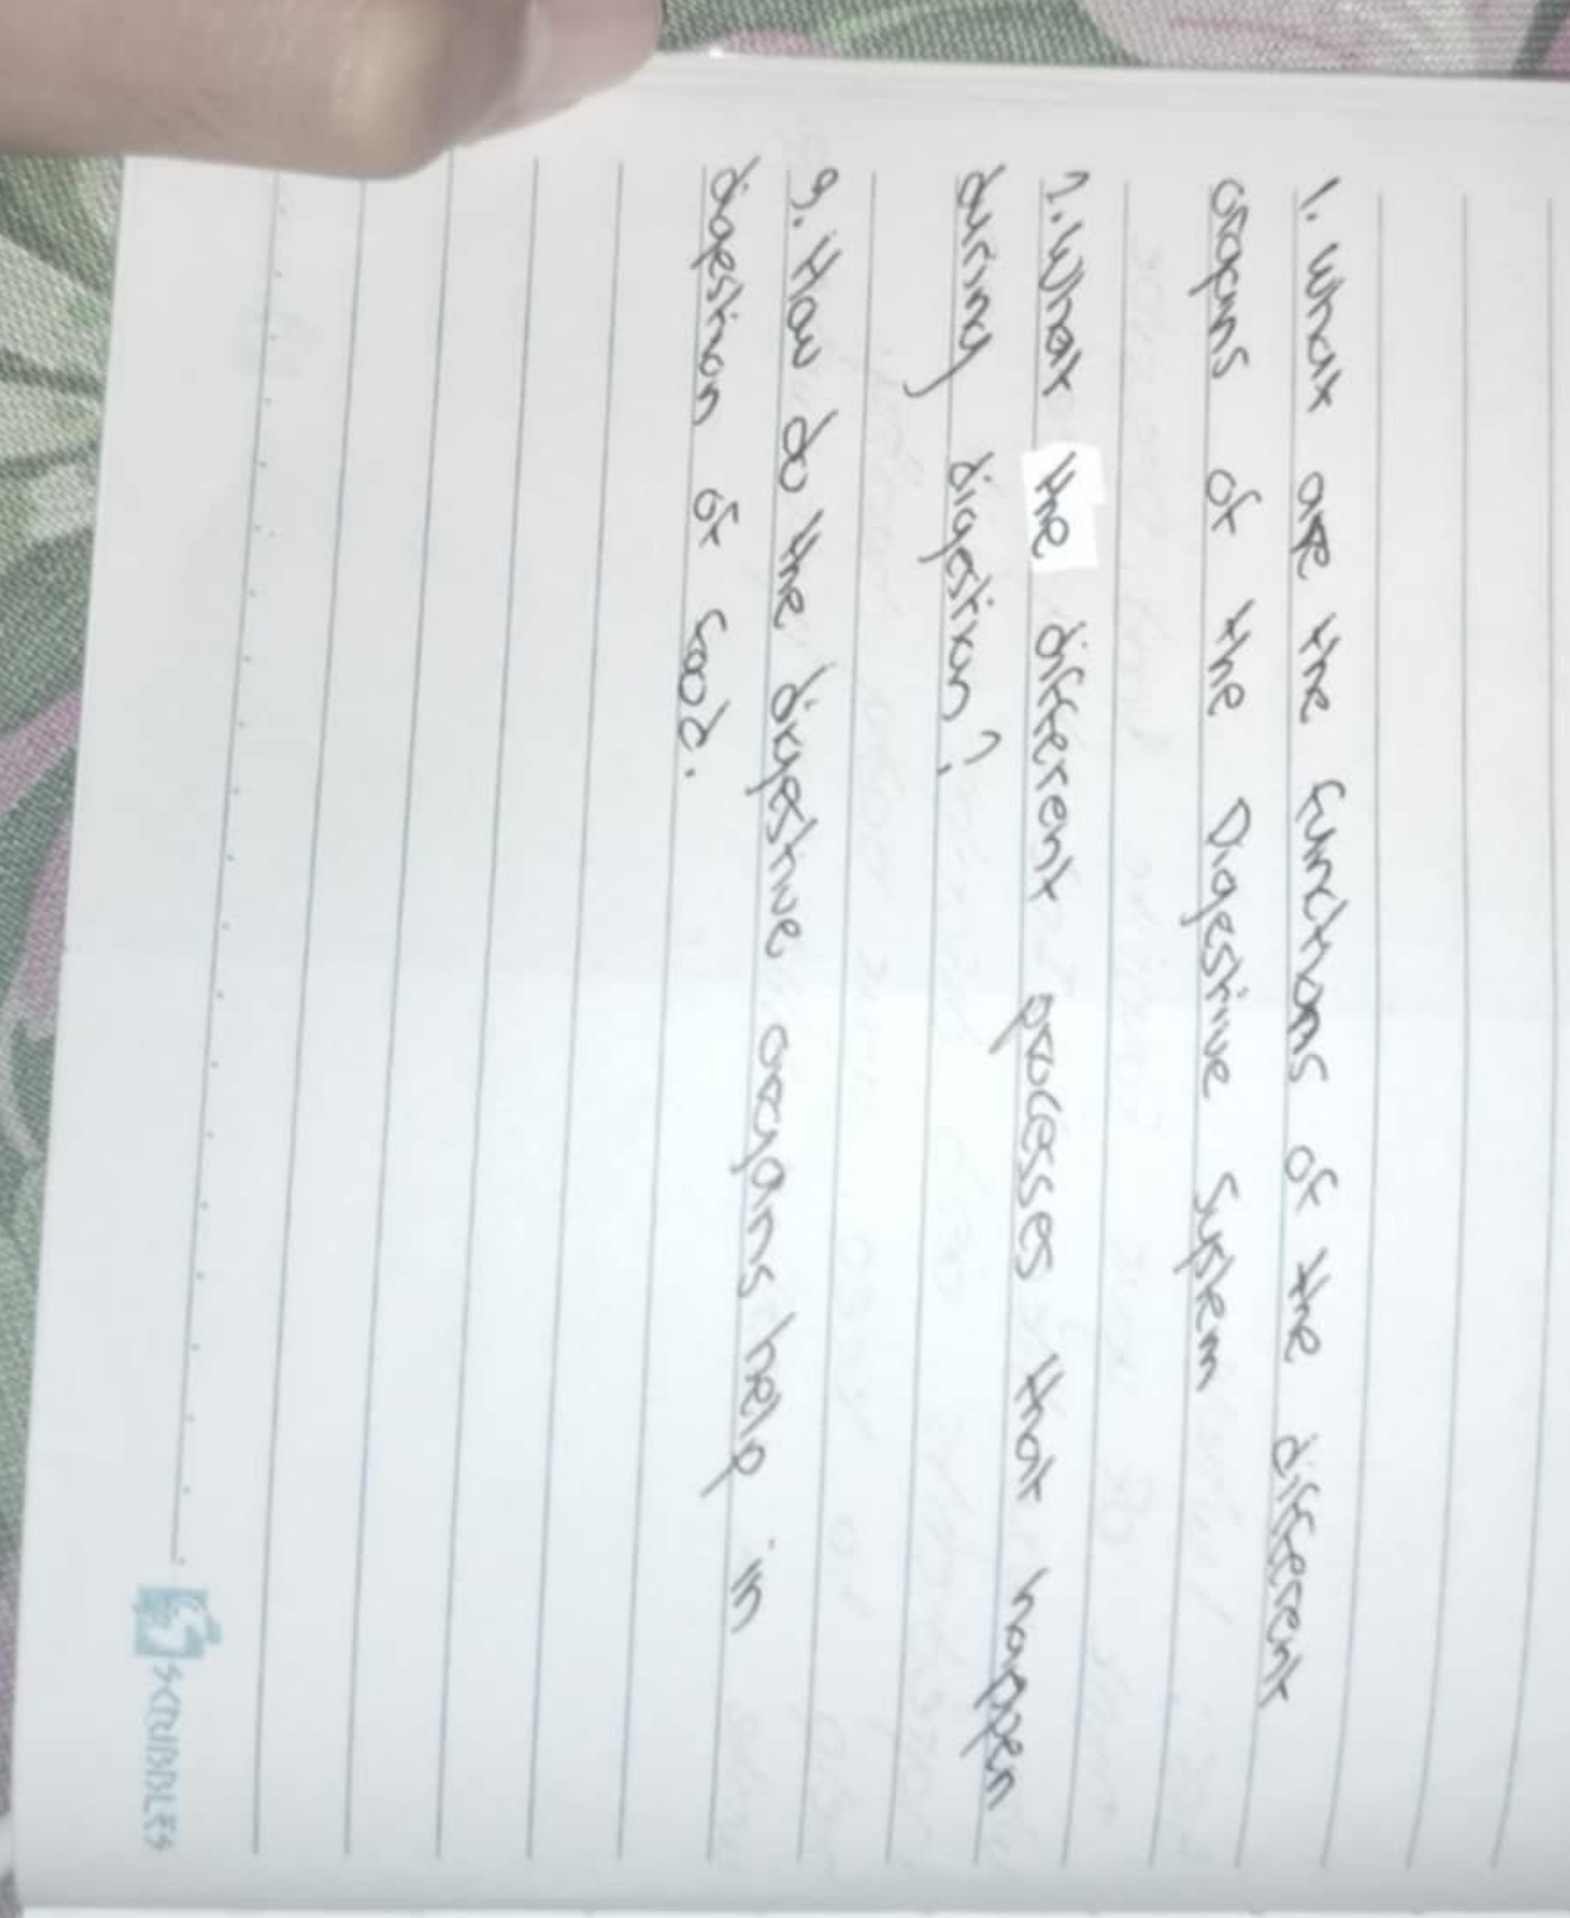 1. What are the functions of the different
organs of the Digestive System
2. What the different processes that happen
during digestion?
3. How do the digestive organs help in
digestion of food.
SCRIBBLES